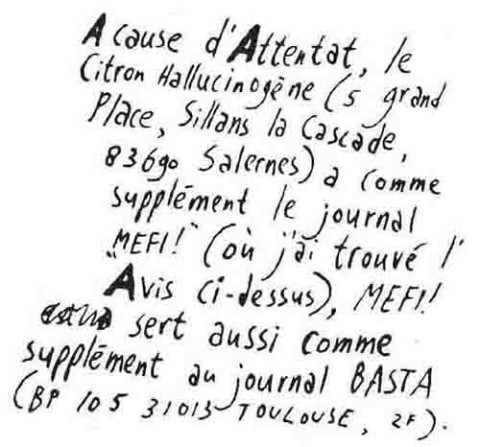 A cause d'Attentat, le
Citron Hallucinogène (5 grand
Place, Sillans la Cascade,
83690 Salernes) a comme
supplément le journal
"MEFI!" (où j'ai trouvé l'
Avis ci-dessus), MEFI!
sert aussi comme
supplément au journal BASTA
(BP 105 31013 TOULOUSE, 2F).